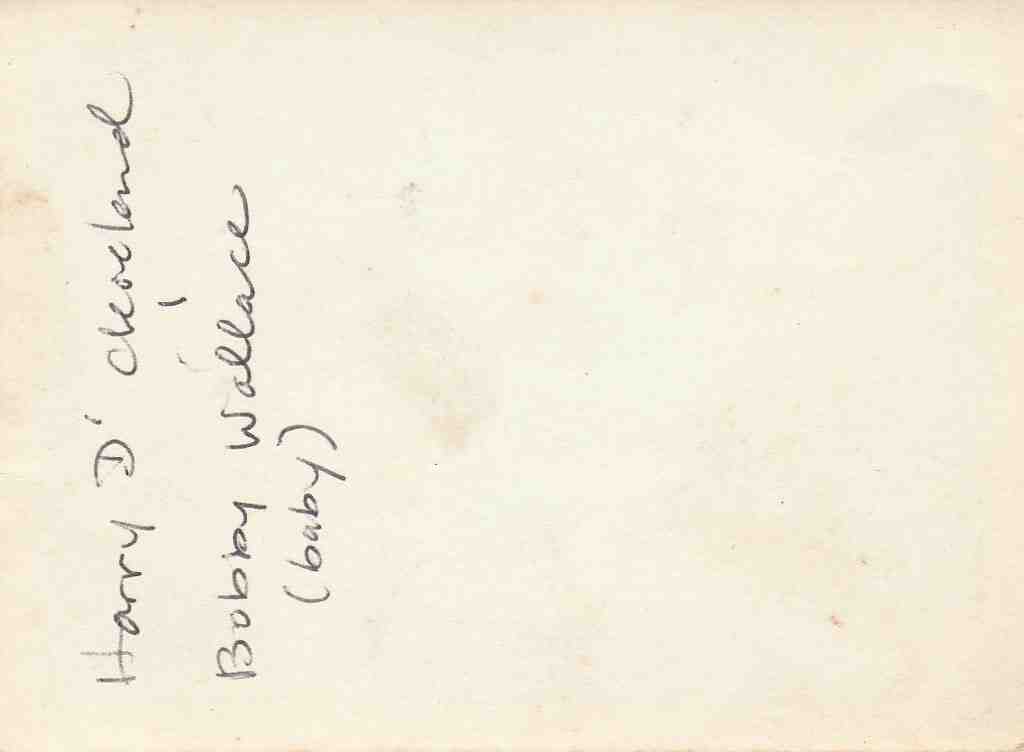 Harry D' Cleveland
Bobby Wallace
(baby)